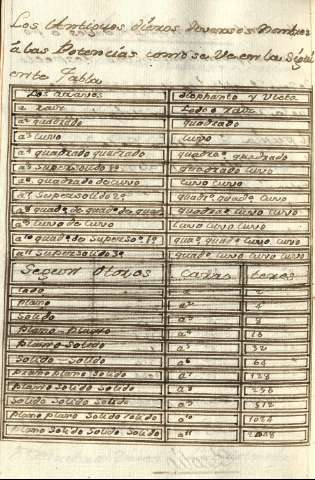 Los Antiguos dieron diversos Nombres
á las Potencias como se ve en la Sigui
ente Tabla
Los Arabes Diophanto y Vieta
a Raiz Lado o Raiz
a² quadrado quadrado
a³ cuvo cuvo
a⁴ quadrado quadrado quadrᵒ quadrado
a⁵ Supersolido 1º quadrado cuvo
a⁶ quadrado de cuvo cuvo cuvo
a⁷ Supersolido 2º quadᵒ quadᵒ cuvo
a⁸ quadᵒ de quadᵒ de quadᵒ quadrado cuvo cuvo
a⁹ cuvo de cuvo cuvo cuvo cuvo
a¹⁰ quadᵒ de Superso.º 1º quaᵒ quadᵒ cuvo cuvo
a¹¹ Supersolido 3º quadᵒ cuvo cuvo cuvo
Segun Otros
lado a 2
plano a² 4
Solido a³ 8
plano plano a⁴ 16
plano Solido a⁵ 32
Solido Solido a⁶ 64
plano plano Solido a⁷ 128
plano Solido Solido a⁸ 256
Solido Solido Solido a⁹ 512
plano plano Solido Solido a¹⁰ 1024
plano Solido Solido Solido a¹¹ 2048